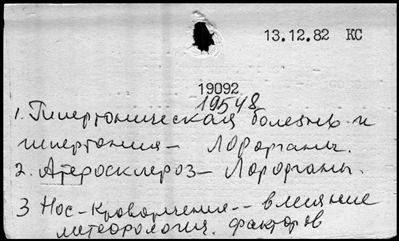 13.12.82 КС
19092
19548
1. Гипертоническая болезнь и
гипертония - ЛОРорганы.
2. Атеросклероз - Лорорганы.
3 Нос - Кровотечения - - влияние
метеорологич. факторов